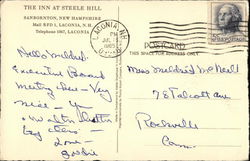 THE INN AT STEELE HILL
SANBORNTON, NEW HAMPSHIRE
Mail RFD 1, LACONIA, N.H.
Telephone 1067, LACONIA
LACONIA, N.H.
PM
1965
POSTCARD
THIS SPACE FOR ADDRESS ONLY
Hello Mildred.
Executive Board
meeting here - Very
nice - You
Walter
Love -
Miss Mildred McNeill
78 Talcott Ave
Rockville
Conn.